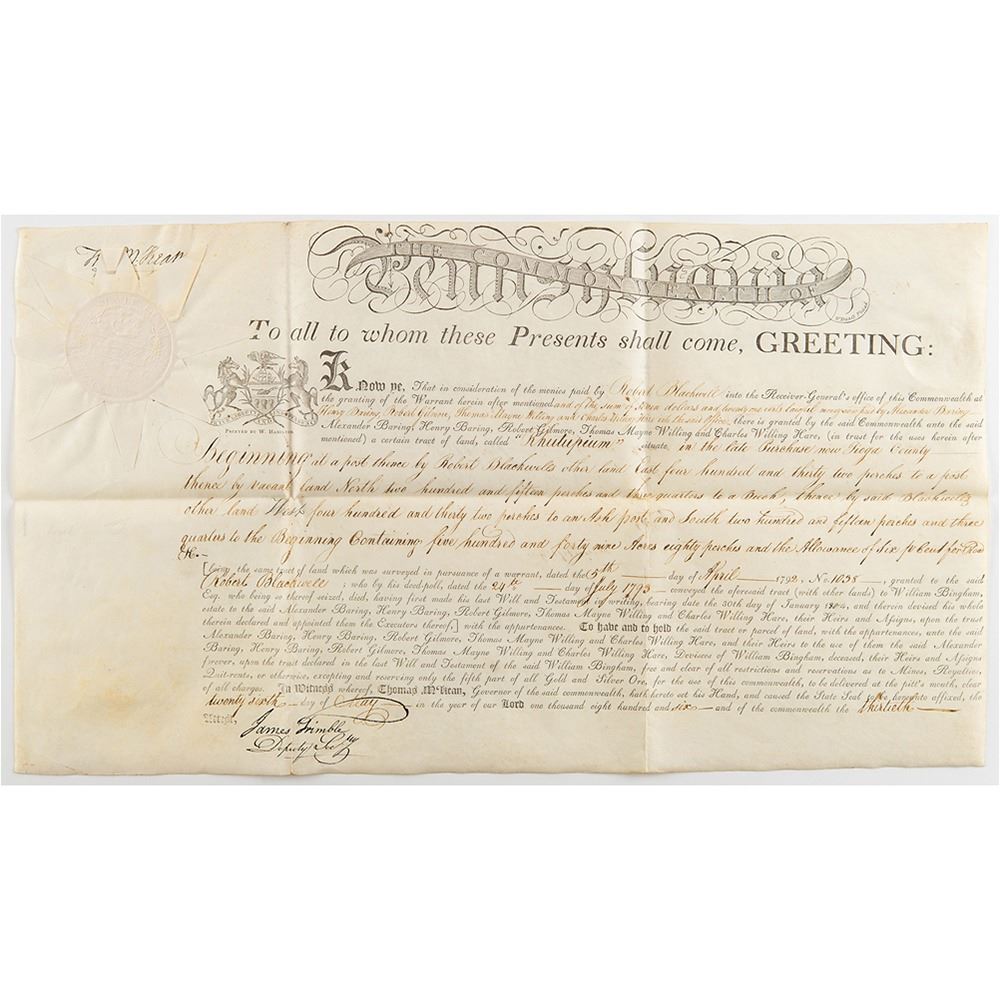 Th M:Kean
THE COMMONWEALTH OF
Pennsylvania
To all to whom these Presents shall come, GREETING:
PRINTED BY W. HAMILTON
Know ye, That in consideration of the monies paid by Robert Blackwell into the Receiver-General's office of this Commonwealth at
the granting of the Warrant herein after mentioned and of the sum of Seven dollars and twenty one cents lawful money now paid by Alexander Baring
Henry Baring, Robert Gilmore, Thomas Mayne Willing and Charles Willing Hare into the said Office, there is granted by the said Commonwealth unto the said
Alexander Baring, Henry Baring, Robert Gilmore, Thomas Mayne Willing and Charles Willing Hare, (in trust for the uses herein after
mentioned) a certain tract of land, called " " situate, in the late Purchase now Tioga County
Beginning at a post thence by Robert Blackwells other land East four hundred and thirty two perches to a post
thence by vacant land North two hundred and fifteen perches and three quarters to a Beech, thence by said Blackwells
other land West four hundred and thirty two perches to an Ash post and South two hundred and fifteen perches and three
quarters to the Beginning Containing five hundred and forty nine Acres eighty perches and the Allowance of Six P Cent for Roads
&c.—
[being the same tract of land which was surveyed in pursuance of a warrant, dated the 5th day of April 1792, No. 1038, granted to the said
Robert Blackwell; who by his deed-poll, dated the 24th day of July 1793 conveyed the aforesaid tract (with other lands) to William Bingham,
Esq. who being so thereof seized, died, having first made his last Will and Testament in writing, bearing date the 30th day of January 1804, and therein devised his whole
estate to the said Alexander Baring, Henry Baring, Robert Gilmore, Thomas Mayne Willing and Charles Willing Hare, their Heirs and Assigns, upon the trust
therein declared and appointed them the Executors thereof,] with the appurtenances. To have and to hold the said tract or parcel of land, with the appurtenances, unto the said
Alexander Baring, Henry Baring, Robert Gilmore, Thomas Mayne Willing and Charles Willing Hare, and their Heirs to the use of them the said Alexander
Baring, Henry Baring, Robert Gilmore, Thomas Mayne Willing and Charles Willing Hare, Devisees of William Bingham, deceased, their Heirs and Assigns
forever, upon the trust declared in the last Will and Testament of the said William Bingham, free and clear of all restrictions and reservations as to Mines, Royalties,
Quit-rents, or otherwise, excepting and reserving only the fifth part of all Gold and Silver Ore, for the use of this commonwealth, to be delivered at the pitt's mouth, clear
of all charges. In Witness whereof, Thomas M'Kean, Governor of the said commonwealth, hath hereto set his Hand, and caused the State Seal to be hereunto affixed, the
twenty sixth day of May in the year of our Lord one thousand eight hundred and six and of the commonwealth the thirtieth
Attest,
James Trimble
Deputy Secy